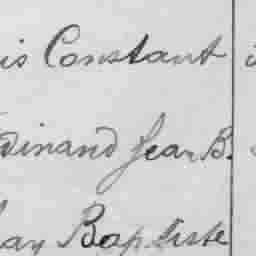 is Constant
dinand Jean B.
ay Baptiste